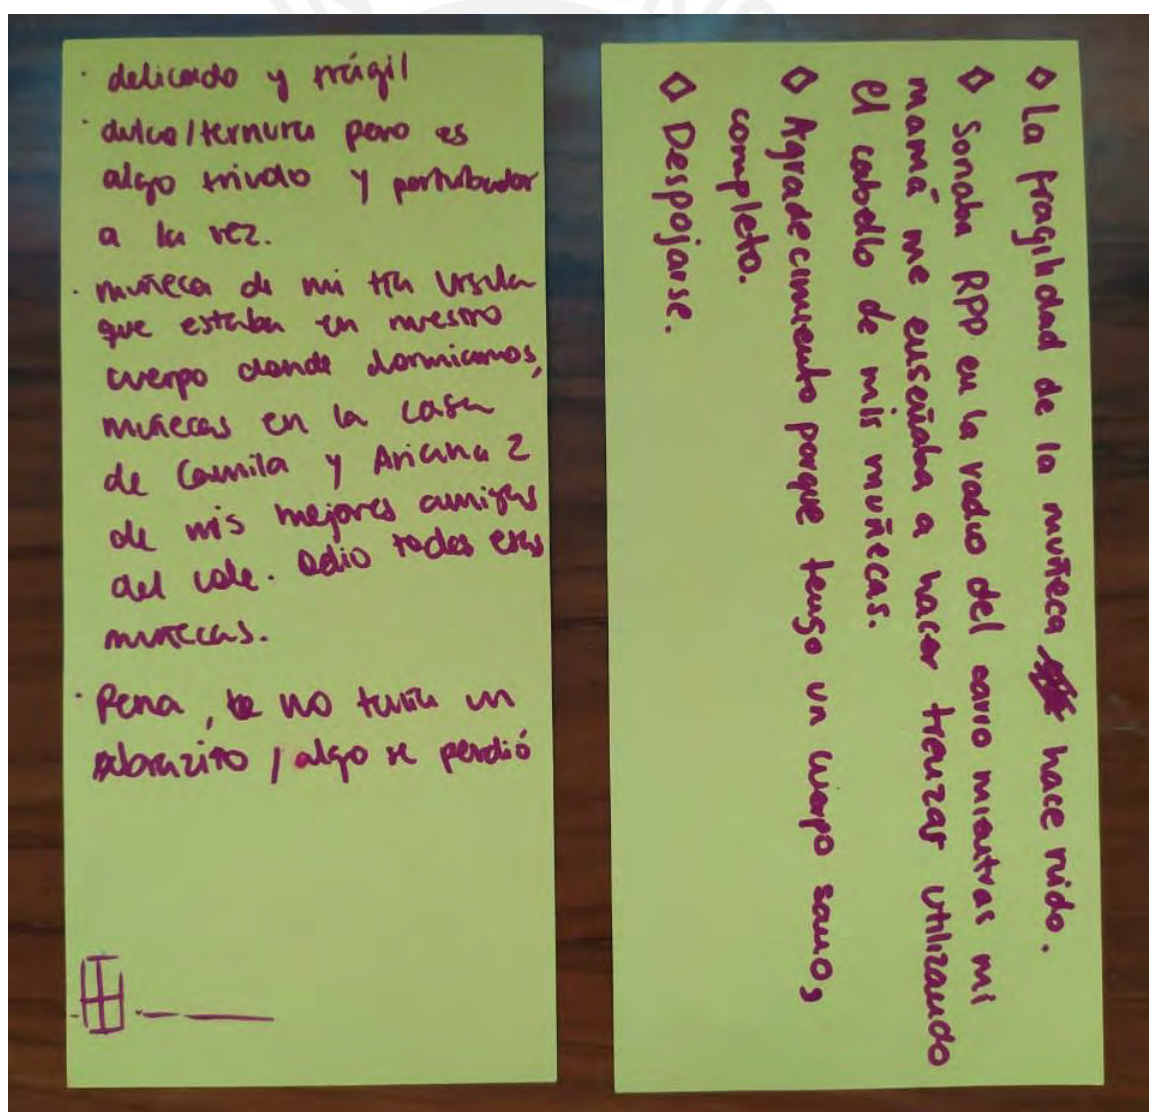 · delicado y frágil
· dulce/ternura pero es
algo trivdo y perturbador
a la vez.
· muñeca de mi tía Ursula
que estaba en nuestro
cuerpo donde dormíamos,
muñecas en la casa
de Camila y Ariana 2
de mis mejores amigas
del cole. Odio todas esas
muñecas.
· Pena, no tenía un
abrazito / algo se perdió
◇ La fragilidad de la muñeca hace ruido.
◇ Sonaba RPP en la radio del carro mientras mi
mamá me enseñaba a hacer trenzas utilizando
el cabello de mis muñecas.
◇ Agradecimiento porque tengo un cuerpo sano,
completo.
◇ Despojarse.